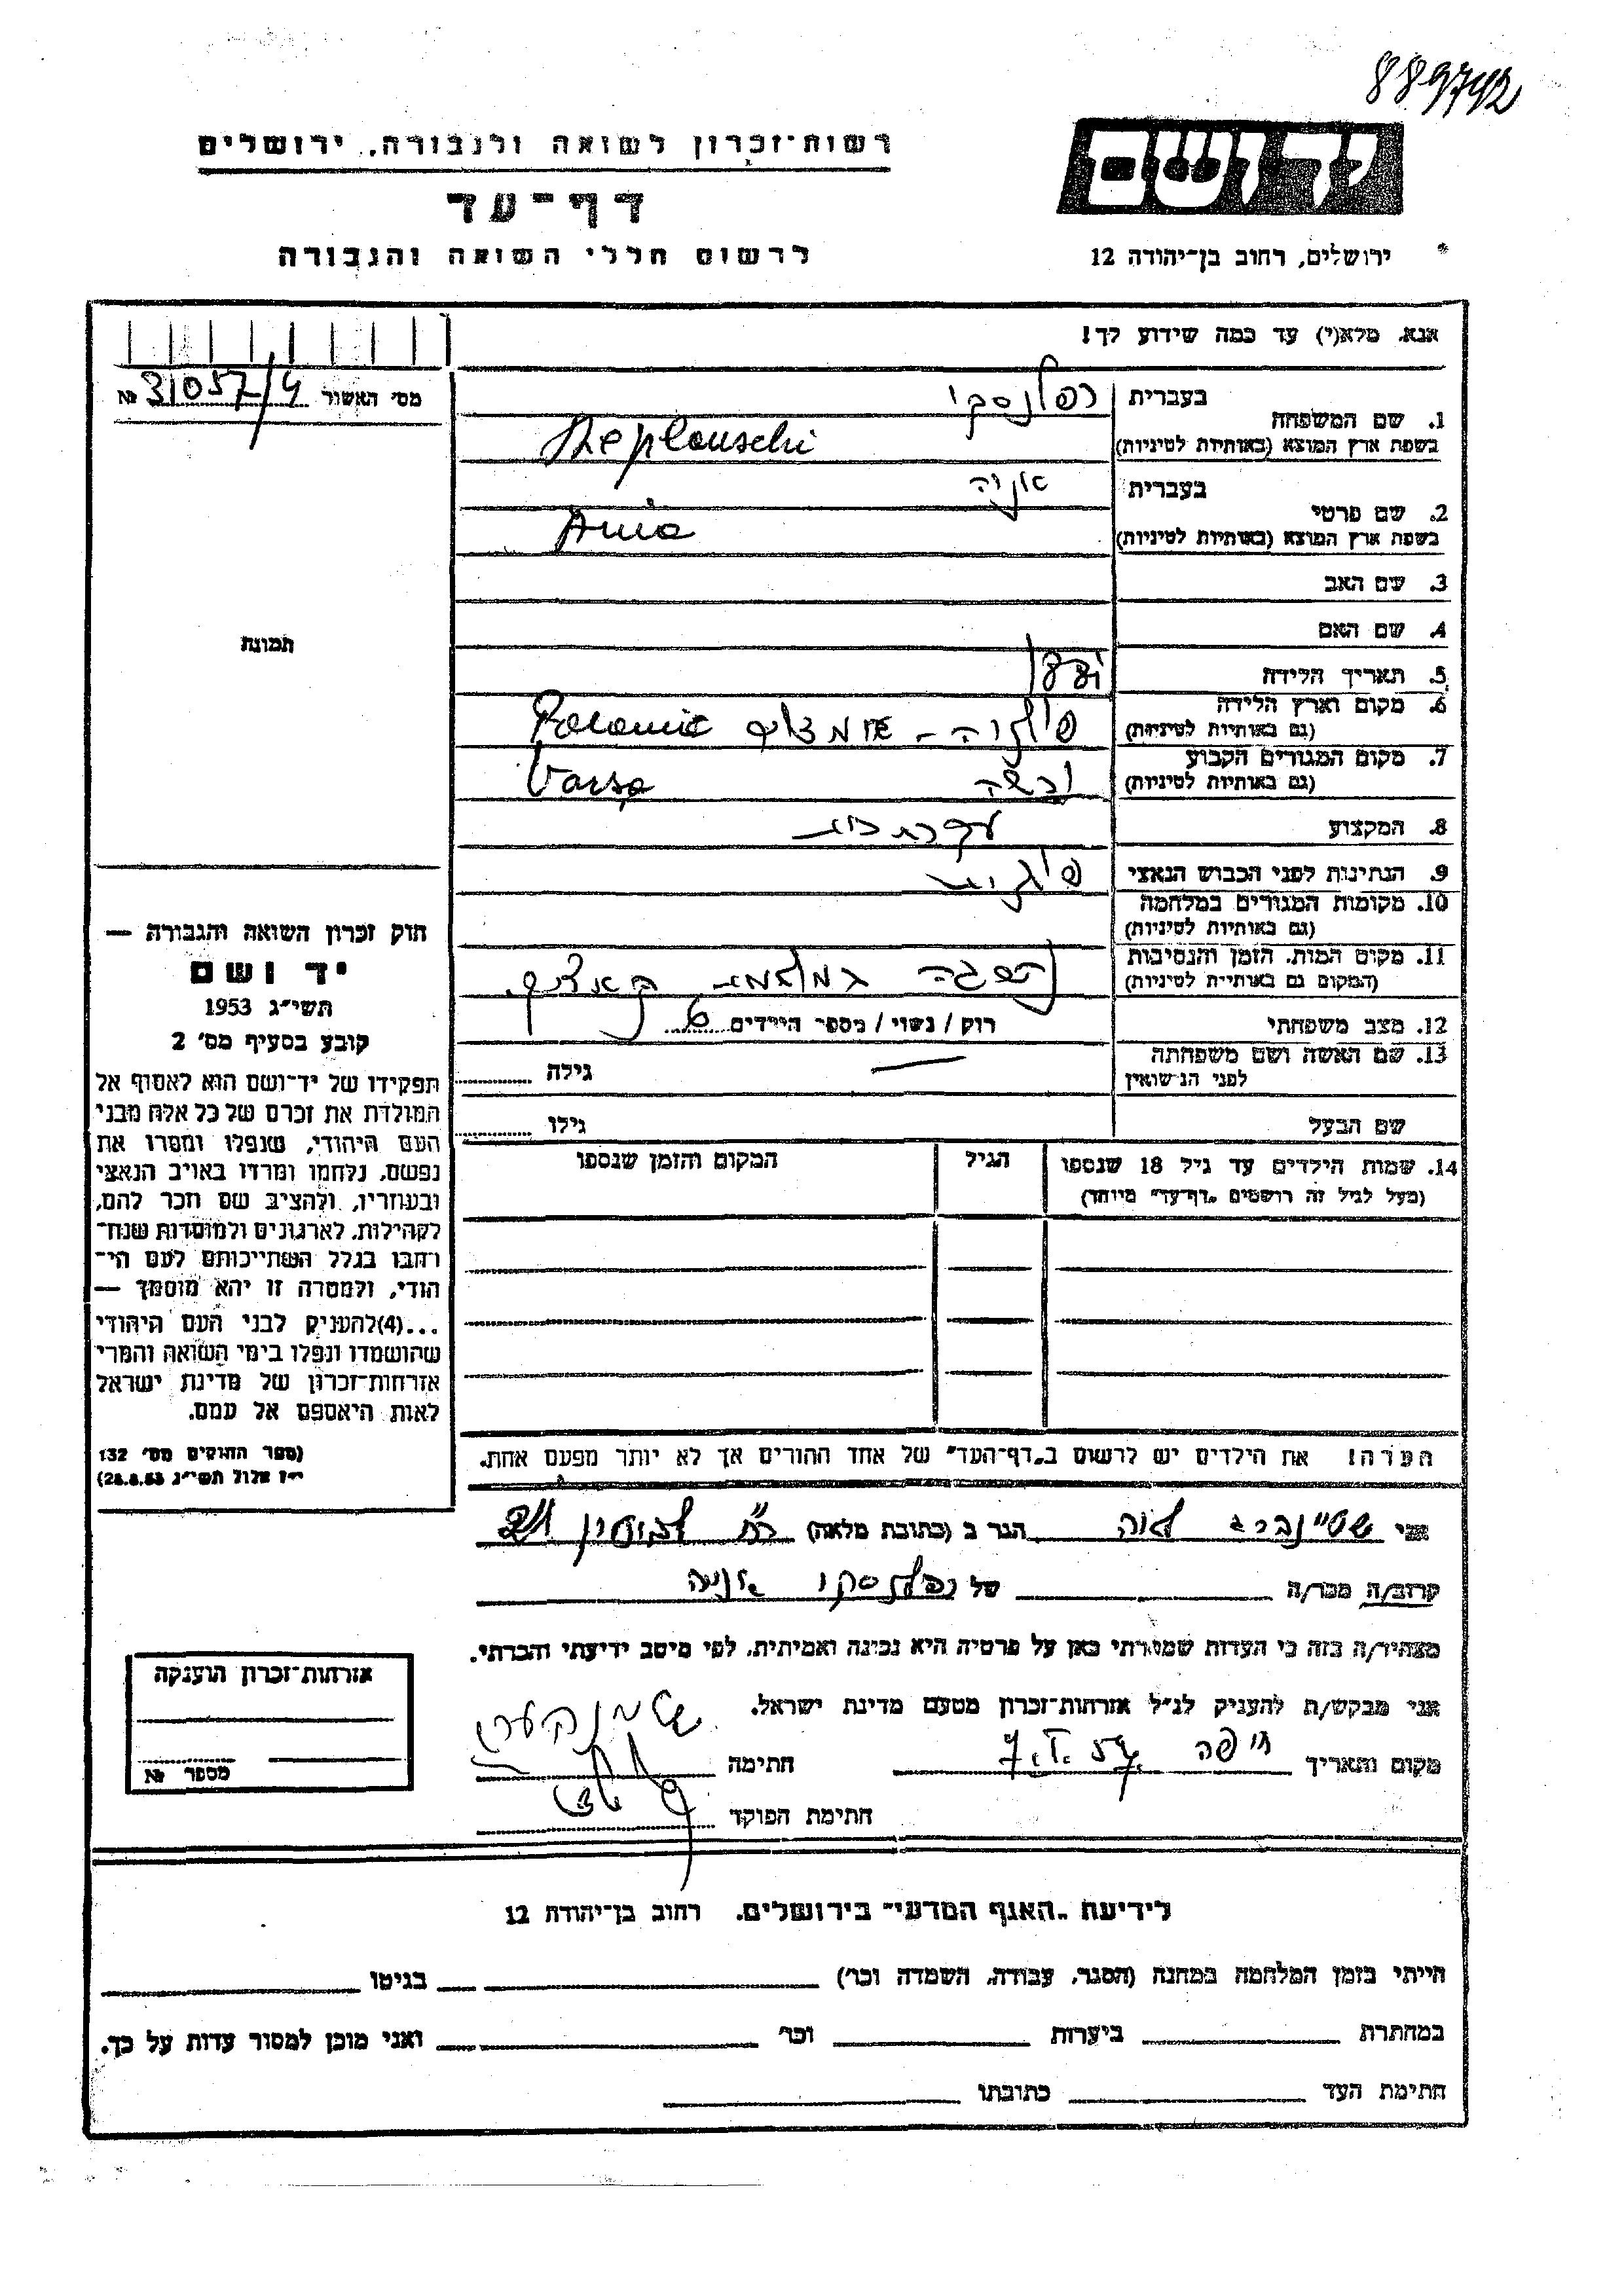 889742
רשות־זכרון לשואה ולגבורה, ירושלים
יד ושם
דף־עד
לרשום חללי השואה והגבורה
ירושלים, רחוב בן־יהודה 12
אנא, מלא(י) עד כמה שידוע לך!
מס׳ האשור 31057/4 №
תמונה
1. שם המשפחה
בעברית רפלנסקי
בשפת ארץ המוצא (באותיות לטיניות)
2. שם פרטי
בעברית אניה
בשפת ארץ המוצא (באותיות לטיניות) Ania
3. שם האב
4. שם האם
5. תאריך הלידה
6. מקום וארץ הלידה
(גם באותיות לטיניות)
7. מקום המגורים הקבוע ורשה Varsa
(גם באותיות לטיניות)
8. המקצוע עקרת בית
9. הנתינות לפני הכבוש הנאצי
10. מקומות המגורים במלחמה
(גם באותיות לטיניות)
11. מקום המות, הזמן והנסיבות נספתה
(המקום גם באותיות לטיניות)
12. מצב משפחתי רוק / נשוי / מספר הילדים 6
13. שם האשה ושם משפחתה גילה
לפני הנישואין
שם הבעל גילו
14. שמות הילדים עד גיל 18 שנספו הגיל המקום והזמן שנספו
(מעל לגיל זה רושמים „דף־עד״ מיוחד)
הערה! את הילדים יש לרשום ב„דף־העד״ של אחד ההורים אך לא יותר מפעם אחת.
חוק זכרון השואה והגבורה —
יד ושם
תשי״ג 1953
קובע בסעיף מס׳ 2
תפקידו של יד־ושם הוא לאסוף אל
המולדת את זכרם של כל אלה מבני
העם היהודי, שנפלו ומסרו את
נפשם, נלחמו ומרדו באויב הנאצי
ובעוזריו, ולהציב שם וזכר להם,
לקהילות, לארגונים ולמוסדות שנח־
רחבו בגלל השתייכותם לעם הי־
הודי, ולמטרה זו יהא מוסמך —
...(4)להעניק לבני העם היהודי
שהושמדו ונפלו בימי השואה והמרי
אזרחות־זכרון של מדינת ישראל
לאות היאספם אל עמם.
(ספר החוקים מס׳ 132
י״ז אלול תשי״ג 28.8.53)
אני שטיינברג הגר ב (כתובת מלאה)
קרוב/ה מכר/ה של רפלנסקי אניה
מצהיר/ה בזה כי העדות שמסרתי כאן על פרטיה היא נכונה ואמיתית, לפי מיטב ידיעתי והכרתי.
אני מבקש/ת להעניק לנ״ל אזרחות־זכרון מטעם מדינת ישראל.
מקום ותאריך חיפה חתימה
חתימת הפוקד
אזרחות־זכרון הוענקה
מספר №
לידיעת „האגף המדעי״ בירושלים, רחוב בן־יהודה 12
הייתי בזמן המלחמה במחנה (הסגר, עבודה, השמדה וכו׳) בגיטו
במחתרת ביערות וכו׳ ואני מוכן למסור עדות על כך.
חתימת העד כתובתו